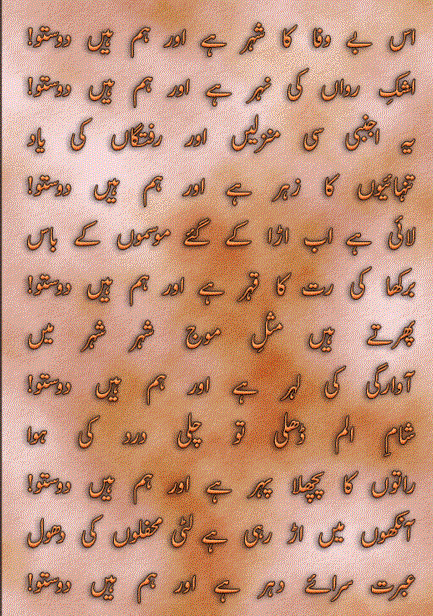 اس بے وفا کا شہر ہے اور ہم ہیں دوستو!
اشکِ رواں کی نہر ہے اور ہم ہیں دوستو!
یہ اجنبی سی منزلیں اور رفتگاں کی یاد
تنہائیوں کا زہر ہے اور ہم ہیں دوستو!
لائی ہے اب اڑا کے گئے موسموں کے باس
برکھا کی رت کا قہر ہے اور ہم ہیں دوستو!
پھرتے ہیں مثلِ موج شہر شہر میں
آوارگی کی لہر ہے اور ہم ہیں دوستو!
شامِ الم ڈھلی تو چلی درد کی ہوا
راتوں کا پچھلا پہر ہے اور ہم ہیں دوستو!
آنکھوں میں اڑ رہی ہے لٹی محفلوں کی دھول
عبرت سرائے دہر ہے اور ہم ہیں دوستو!